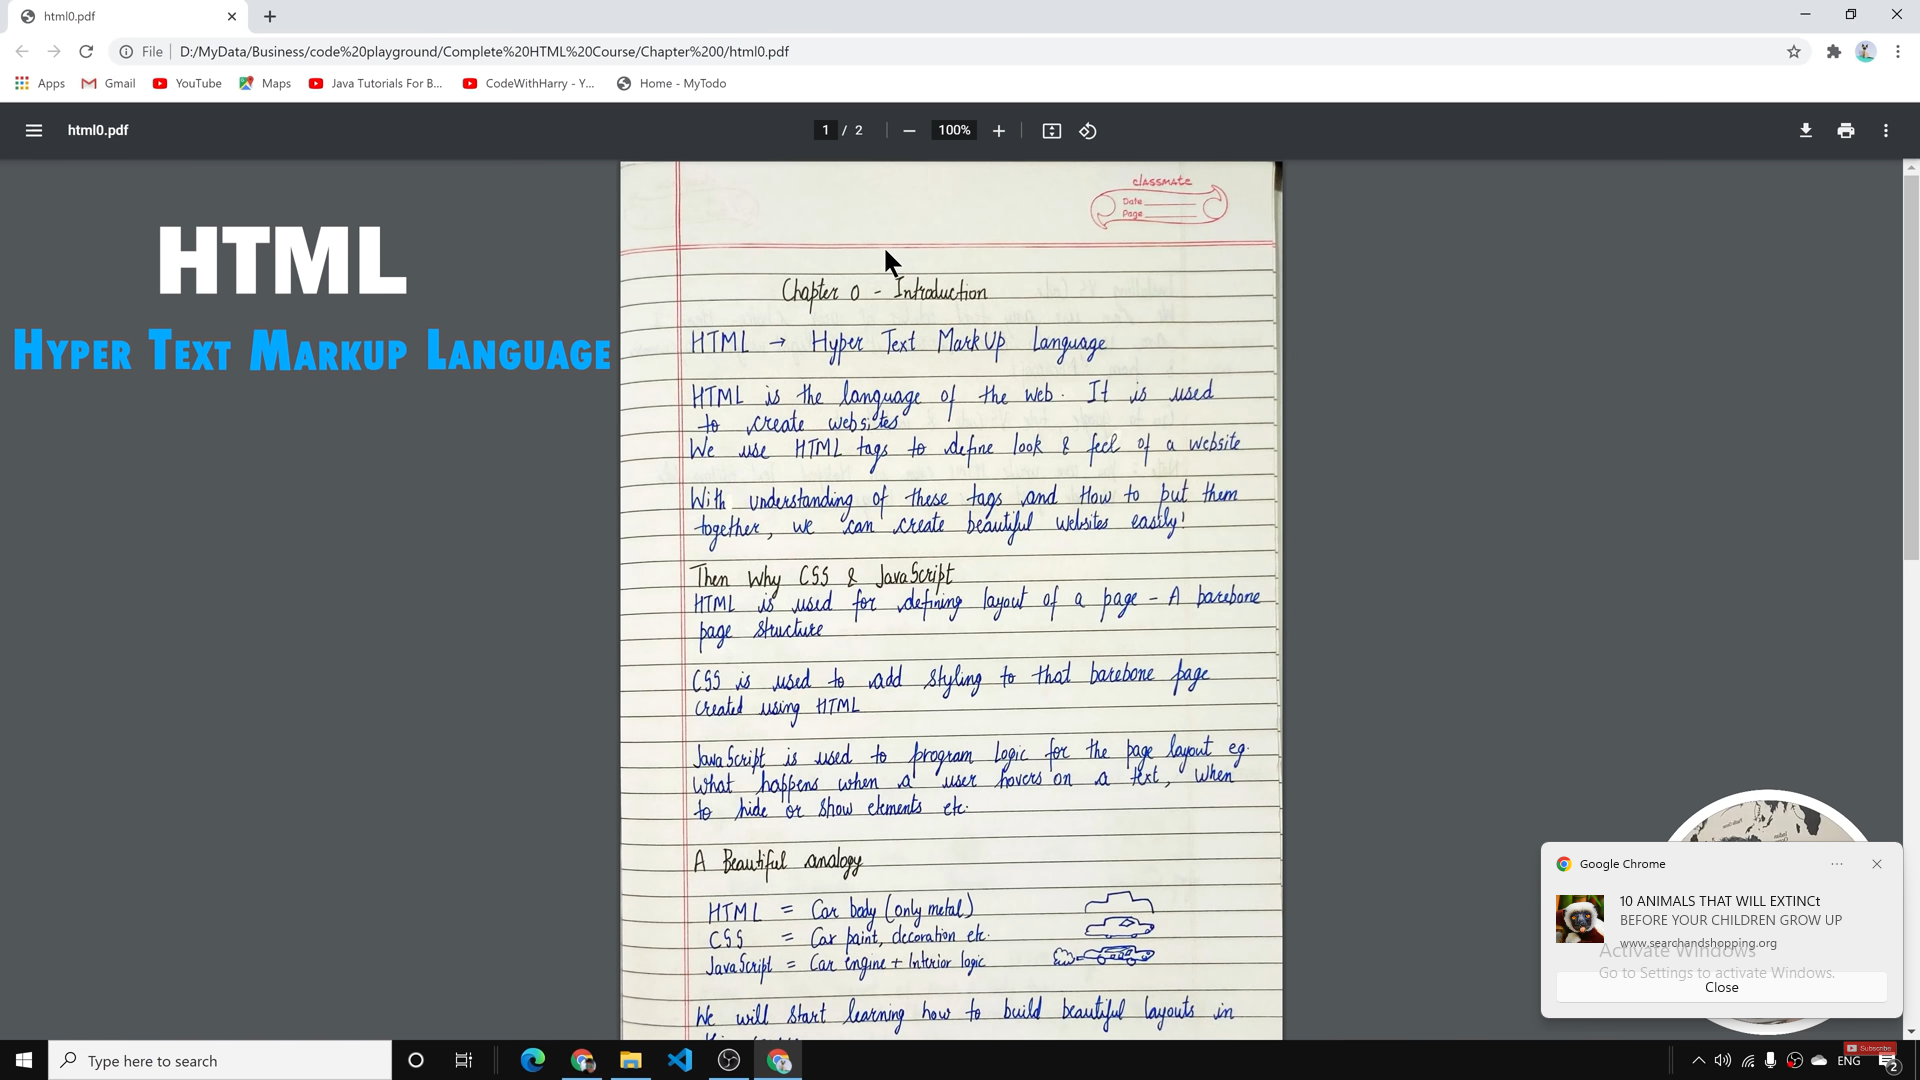 html0.pdf
File
D:/MyData/Business/code%20playground/Complete%20HTML%20Course/Chapter%200/html0.pdf
Apps
Gmail
YouTube
Maps
Java Tutorials For B...
CodeWithHarry - Y...
Home - MyTodo
html0.pdf
1 / 2
100%
classmate
Date
Page
HTML
HYPER TEXT MARKUP LANGUAGE
Chapter 0 - Introduction
HTML → Hyper Text MarkUp Language
HTML is the language of the web. It is used
to create websites
We use HTML tags to define look & feel of a website
With understanding of these tags and How to put them
together, we can create beautiful websites easily!
Then Why CSS & JavaScript
HTML is used for defining layout of a page - A barebone
page structure
CSS is used to add styling to that barebone page
created using HTML
JavaScript is used to program logic for the page layout eg.
What happens when a user hovers on a text, when
to hide or show elements etc.
A Beautiful analogy
HTML = Car body (only metal)
CSS = Car paint, decoration etc.
JavaScript = Car engine + Interior logic
We will start learning how to build beautiful layouts in
Google Chrome
10 ANIMALS THAT WILL EXTINCt
BEFORE YOUR CHILDREN GROW UP
www.searchandshopping.org
Activate Windows
Go to Settings to activate Windows.
Close
Type here to search
Subscribe
ENG
2